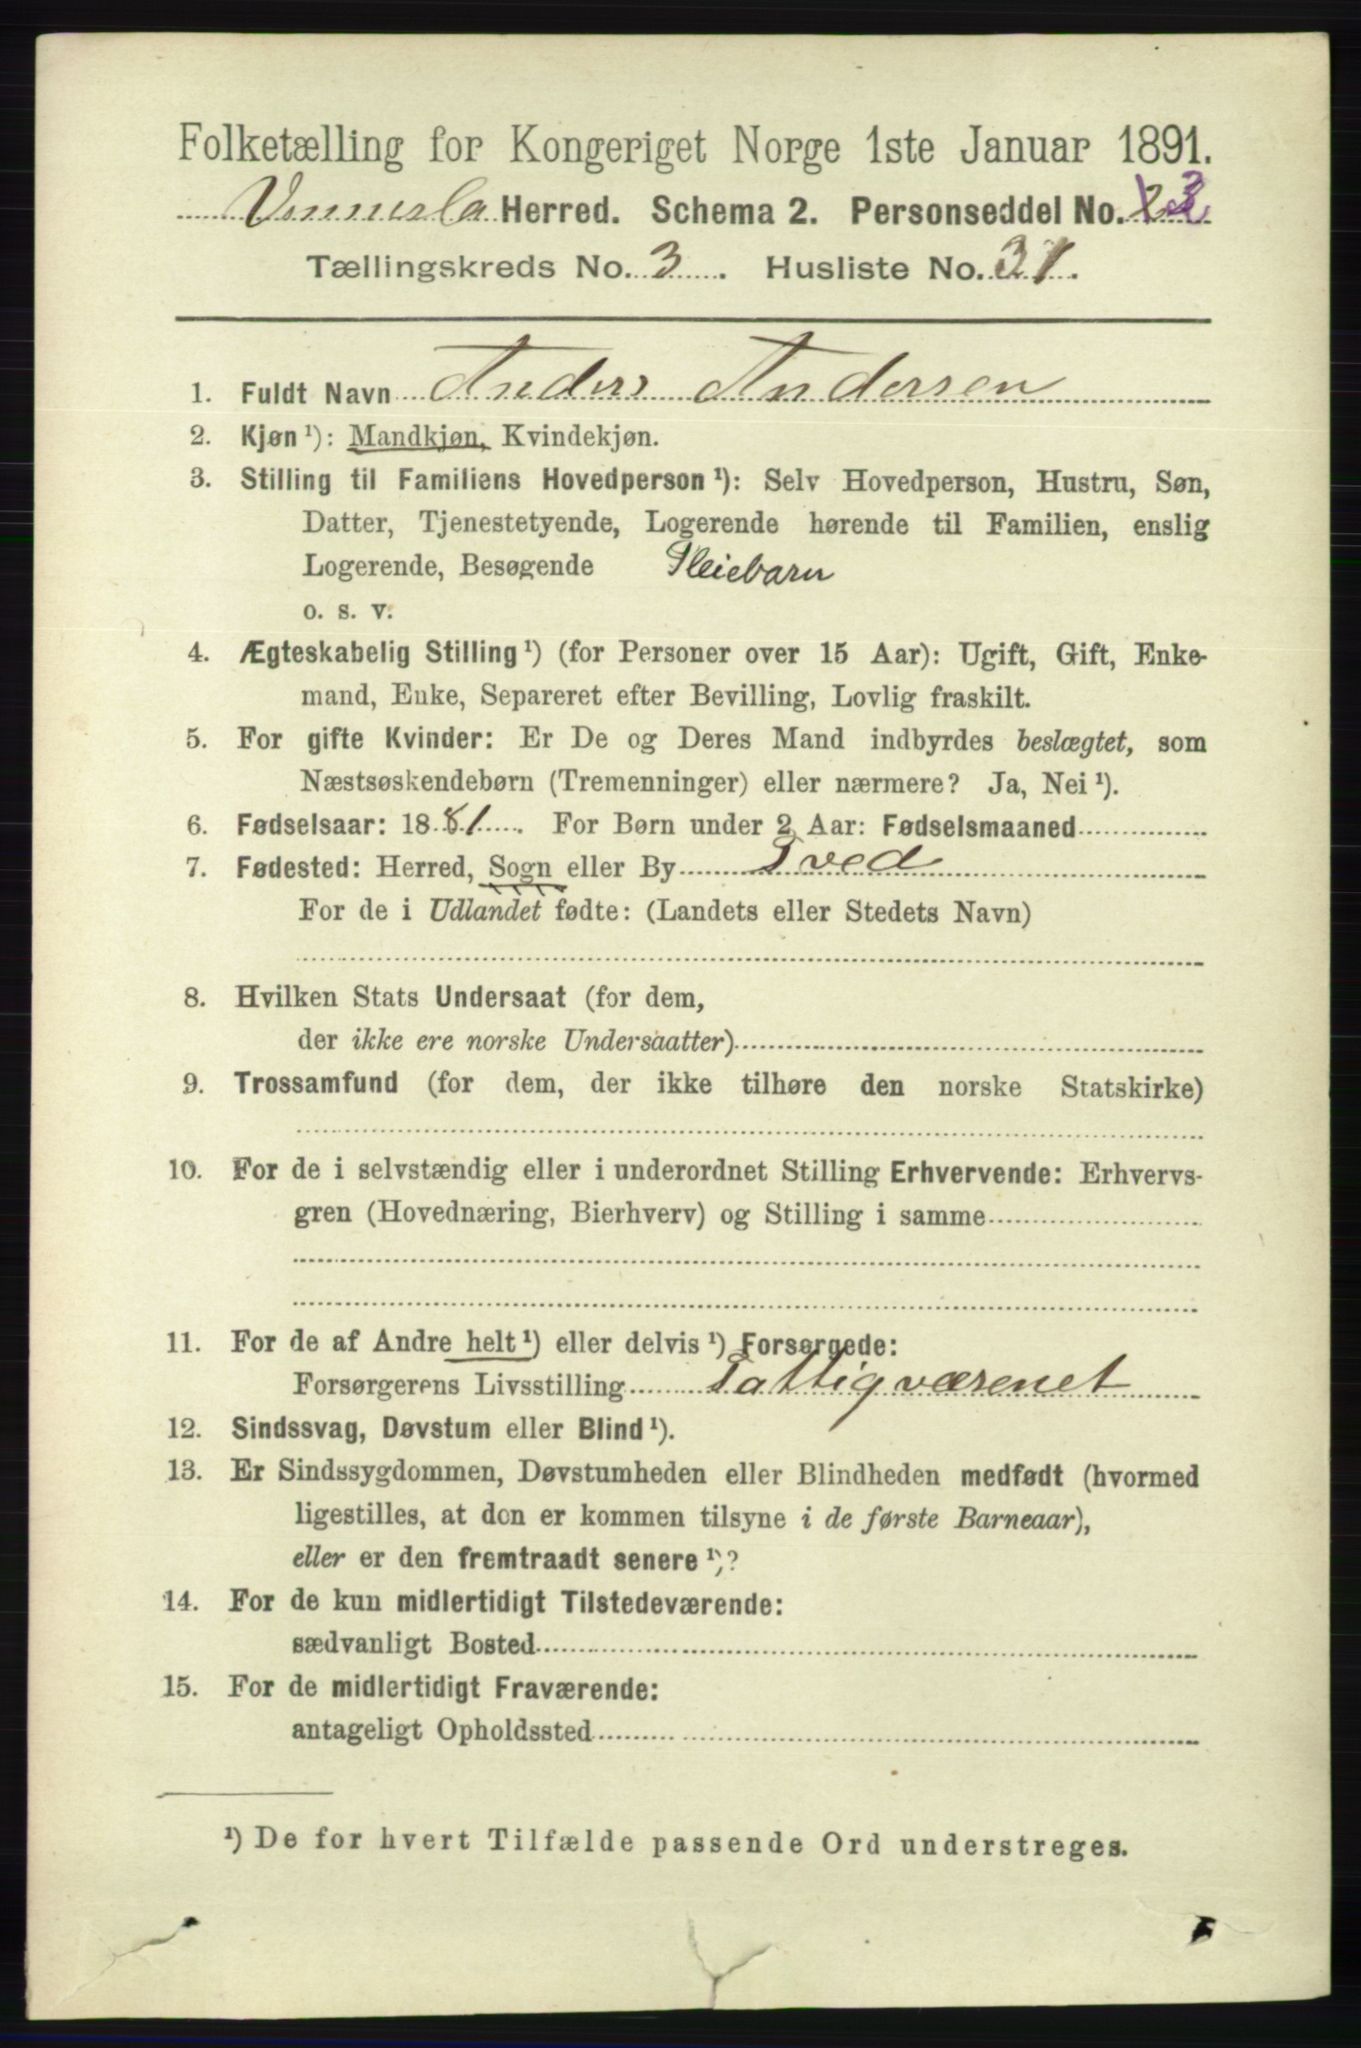 Folketælling for Kongeriget Norge 1ste Januar 1891.
Vennesla Herred. Schema 2. Personseddel No. 3
Tællingskreds No. 3. Husliste No. 31.
1. Fuldt Navn Anders Andersen
2. Kjøn ¹): Mandkjøn, Kvindekjøn.
3. Stilling til Familiens Hovedperson ¹): Selv Hovedperson, Hustru, Søn,
Datter, Tjenestetyende, Logerende hørende til Familien, enslig
Logerende, Besøgende Pleiebarn
o. s. v.
4. Ægteskabelig Stilling ¹) (for Personer over 15 Aar): Ugift, Gift, Enke-
mand, Enke, Separeret efter Bevilling, Lovlig fraskilt.
5. For gifte Kvinder: Er De og Deres Mand indbyrdes beslægtet, som
Næstsøskendebørn (Tremenninger) eller nærmere? Ja, Nei ¹).
6. Fødselsaar: 1881. For Børn under 2 Aar: Fødselsmaaned
7. Fødested: Herred, Sogn eller By Tved
For de i Udlandet fødte: (Landets eller Stedets Navn)
8. Hvilken Stats Undersaat (for dem,
der ikke ere norske Undersaatter)
9. Trossamfund (for dem, der ikke tilhøre den norske Statskirke)
10. For de i selvstændig eller i underordnet Stilling Erhvervende: Erhvervs-
gren (Hovednæring, Bierhverv) og Stilling i samme
11. For de af Andre helt ¹) eller delvis ¹) Forsørgede:
Forsørgerens Livsstilling Fattigværenet
12. Sindssvag, Døvstum eller Blind ¹).
13. Er Sindssygdommen, Døvstumheden eller Blindheden medfødt (hvormed
ligestilles, at den er kommen tilsyne i de første Barneaar),
eller er den fremtraadt senere ¹)?
14. For de kun midlertidigt Tilstedeværende:
sædvanligt Bosted
15. For de midlertidigt Fraværende:
antageligt Opholdssted
¹) De for hvert Tilfælde passende Ord understreges.